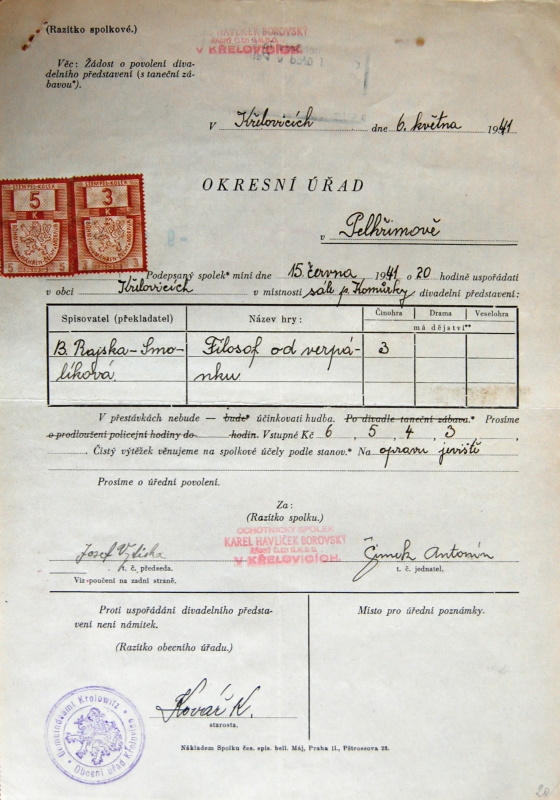 (Razítko spolkové.)
HAVLÍČEK BOROVSKÝ
V KŘELOVICÍCH
Věc: Žádost o povolení diva-
delního představení (s taneční zá-
bavou*).
V Křelovicích dne 6. května 1941
OKRESNÍ ÚŘAD
v Pelhřimově
STEMPEL-KOLEK STEMPEL-KOLEK
5 3
K K
5 5 3 3
Podepsaný spolek* míní dne 15. června 1941 o 20 hodině uspořádati
v obci Křelovicích v místnosti sále p. Komůrky divadelní představení:
Spisovatel (překladatel) Název hry: Činohra Drama Veselohra
má dějství**
B. Rajska-Smo- Filosof od verpá- 3
líková nku
V přestávkách nebude — bude* účinkovati hudba. Po divadle taneční zábava.* Prosíme
o prodloužení policejní hodiny do hodin. Vstupné Kč 6, 5, 4, 3,
Čistý výtěžek věnujeme na spolkové účely podle stanov.* Na opravu jeviště
Prosíme o úřední povolení.
Za:
(Razítko spolku.)
OCHOTNICKÝ SPOLEK
KAREL HAVLÍČEK BOROVSKÝ
ŘÁDNÝ ČLEN Ú.M.D.O.
V KŘELOVICÍCH.
Josef Čimek Antonín
t. č. předseda. t. č. jednatel.
Viz poučení na zadní straně.
Proti uspořádání divadelního předsta-
vení není námitek.
(Razítko obecního úřadu.)
Místo pro úřední poznámky.
Kovář K.
starosta.
Gemeindeamt Krelowitz
Obecní úřad Křelovice
Nákladem Spolku čes. spis. bell. Máj, Praha II., Pštrossova 23.
20